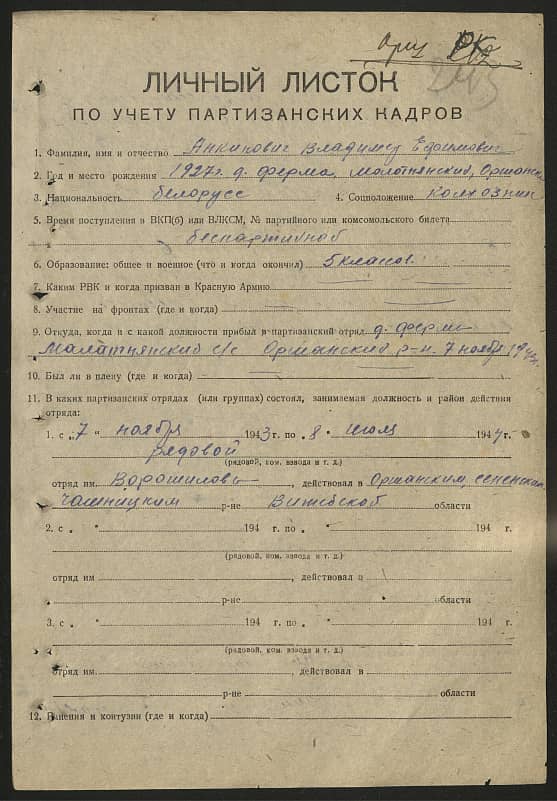 ЛИЧНЫЙ ЛИСТОК
ПО УЧЕТУ ПАРТИЗАНСКИХ КАДРОВ
1. Фамилия, имя и отчество Анкинович Владимир Ефимович
2. Год и место рождения 1927 г. д. ферма, Малотнянский, Оршанск
3. Национальность белорусс 4. Соцположение колхозник
5. Время поступления в ВКП(б) или ВЛКСМ, № партийного или комсомольского билета
беспартийной
6. Образование: общее и военное (что и когда окончил) 5 класов.
7. Каким РВК и когда призван в Красную Армию
8. Участие на фронтах (где и когда)
9. Откуда, когда и с какой должности прибыл в партизанский отряд д. ферма
Малатнянский с/с Оршанский р-н. 7 ноября 1943
10. Был ли в плену (где и когда)
11. В каких партизанских отрядах (или группах) состоял, занимаемая должность и район действия
отряда:
1. с „7 “ ноября 1943 г. по „8 “ июля 1944 г.
рядовой
(рядовой, ком. взвода и т. д.)
отряд им. Ворошилова, действовал в Оршанским, сененским
Чашницким р-не Витебской области
2. с „ “ 194 г. по „ “ 194 г.
(рядовой, ком. взвода и т. д.)
отряд им , действовал в
р-не области
3. с „ “ 194 г. по „ “ 194 г.
(рядовой, ком. взвода и т. д.)
отряд им. , действовал в
р-не области
12. Ранения и контузии (где и когда)